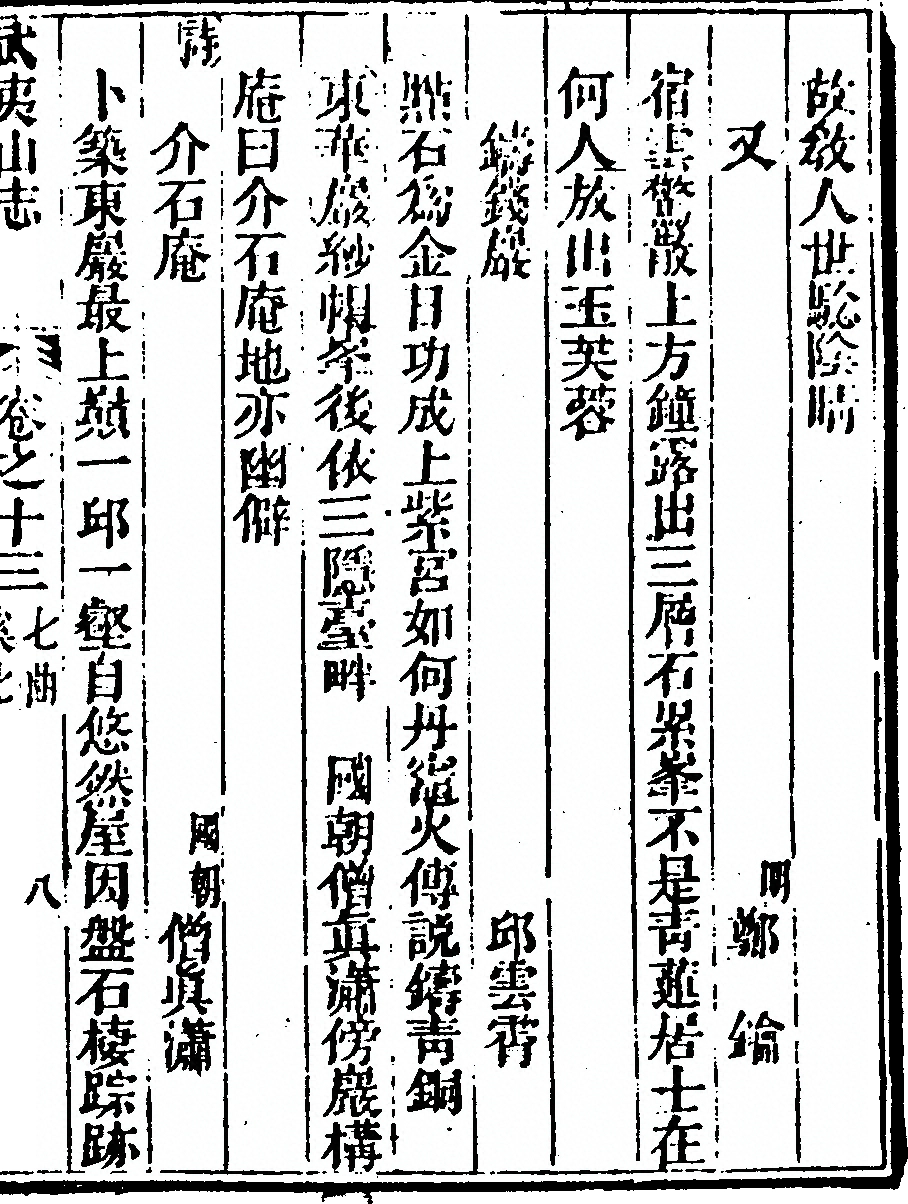 故敎人世驗陰晴
又 明 鄭綸
宿雲驚散上方鐘露出三層石累峯不是靑蓮居士在
何人放出玉芙蓉
鑄錢巖 邱雲霄
點石爲金日功成上紫宮如何丹竈火傳說鑄靑銅
東華巖紗帽峯後依三隱臺畔 國朝僧眞瀟傍巖構
庵曰介石庵地亦幽僻
詩 介石庵 國朝 僧眞瀟
卜築東巖最上巔一邱一壑自悠然屋因盤石棲踪跡
武夷山志 卷之十三 七曲 溪北 八